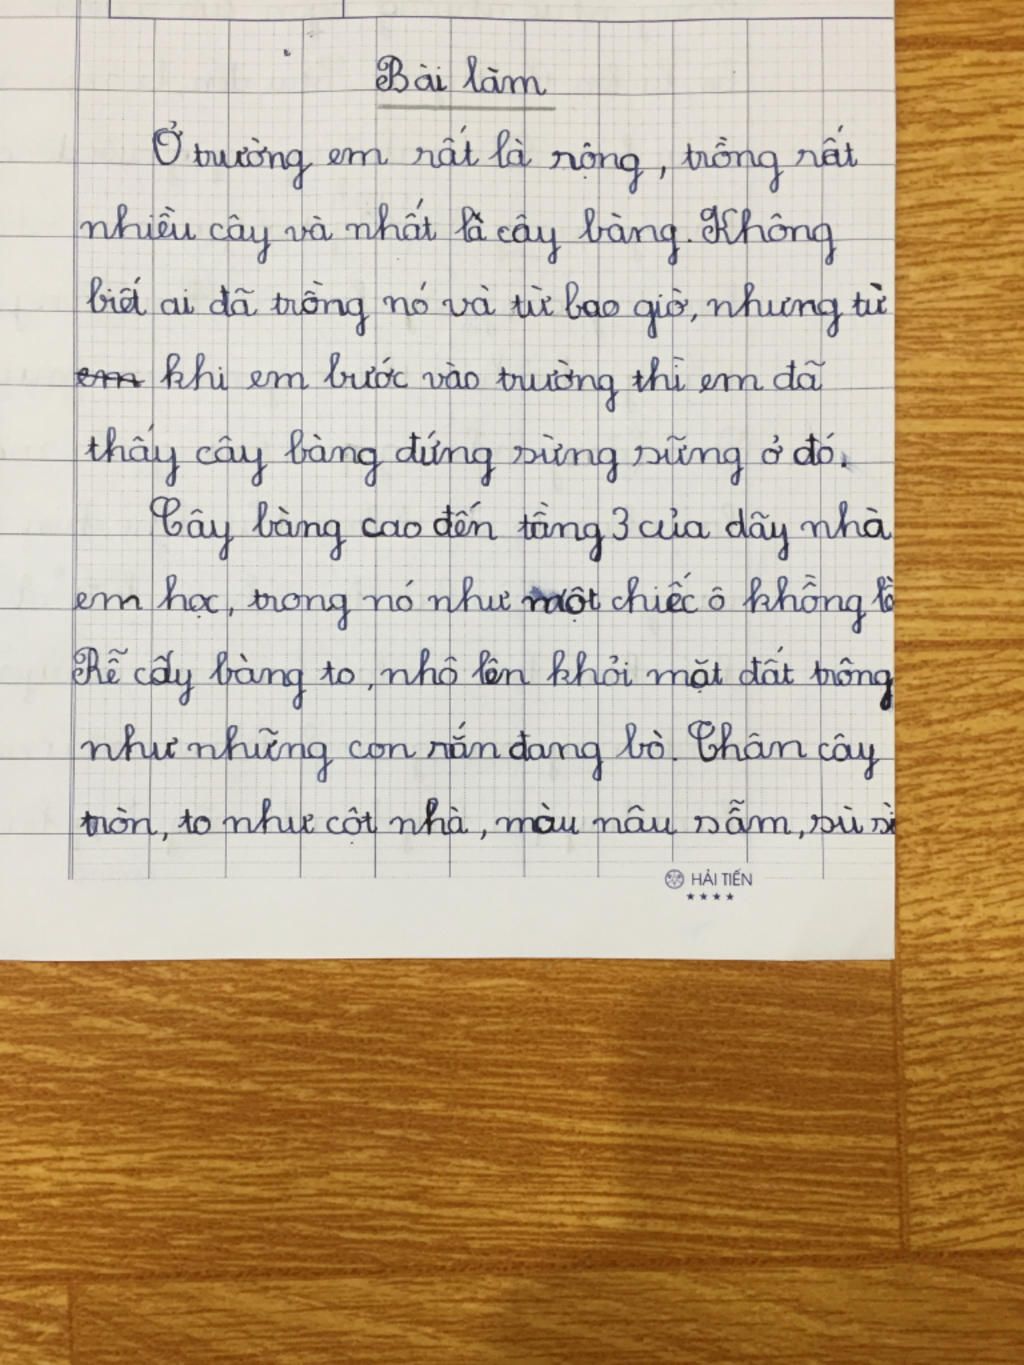 Bài làm
Ở trường em rất là rộng, trồng rất
nhiều cây và nhất là cây bàng. Không
biết ai đã trồng nó và từ bao giờ, nhưng từ
em khi em bước vào trường thì em đã
thấy cây bàng đứng sừng sững ở đó.
Cây bàng cao đến tầng 3 của dãy nhà
em học, trong nó như một chiếc ô khồng lồ
Rễ cây bàng to, nhô lên khỏi mặt đất trông
như những con rắn đang bò. Thân cây
tròn, to như cột nhà, màu nâu sẫm, sù sì
HẢI TIẾN